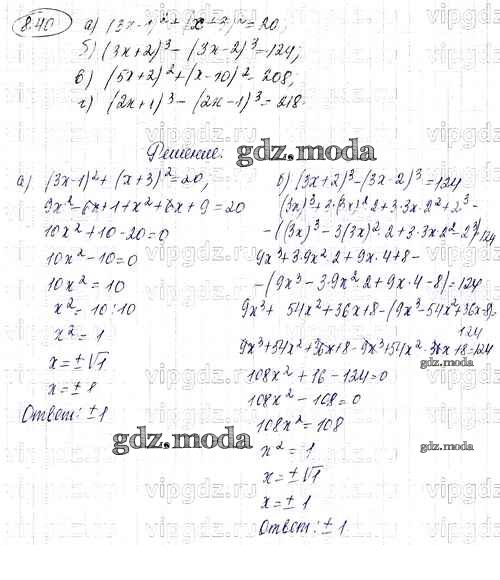 8.40
а) (3x-1)²+(x+3)²=20;
б) (3x+2)³-(3x-2)³=124;
в) (5x+2)²+(x-10)²=208;
г) (2x+1)³-(2x-1)³=218.
Решение.
gdz.moda
а) (3x-1)²+(x+3)²=20;
9x²-6x+1+x²+6x+9=20
10x²+10-20=0
10x²-10=0
10x²=10
x²=10:10
x²=1
x=±√1
x=±1
Ответ: ±1
б) (3x+2)³-(3x-2)³=124
(3x)³+3·(3x)²·2+3·3x·2²+2³-
-((3x)³-3(3x)²·2+3·3x·2²-2³)=124
9x³+3·9x²·2+9x·4+8-
-(9x³-3·9x²·2+9x·4-8)=124
9x³+54x²+36x+8-(9x³-54x²+36x-8)=
124
9x³+54x²+36x+8-9x³+54x²-36x+8=124
108x²+16-124=0
108x²-108=0
108x²=108
x²=1
x=±√1
x=±1
Ответ: ±1
gdz.moda
gdz.moda
gdz.moda
vipgdz.ru